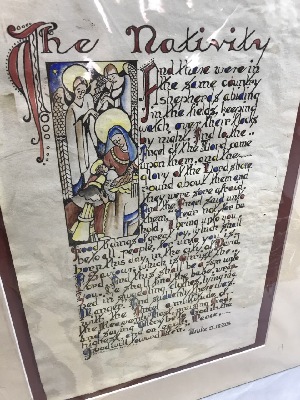 The Nativity
And there were in
the same country
shepherds abiding
in the fields, keeping
watch over their flocks
by night. And lo the
Angel of the Lord came
upon them, and the
glory of the Lord shone
round about them and
they were sore afraid.
And the Angel said unto
them, Fear not for be
hold, I bring unto you
good tidings of great joy, which shall
be to all people, for unto you is
born this day, in the city of David
which is Christ the
shall be a sign unto
Ye shall find the babe wrap
ped in swaddling clothes, lying in a
Manger. And
the heavenly
and saying Glory be to God in the
highest and on earth Peace,
Good will toward Men.